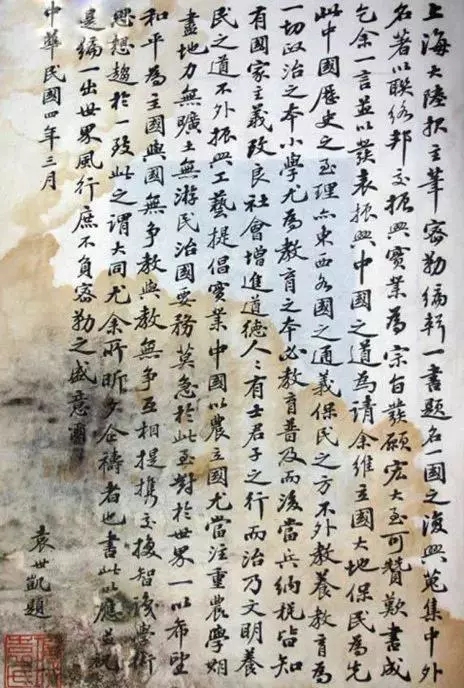 上海大陸報主筆密勒編輯一書題名一國之復興蒐集中外
名著以聯絡邦交振興實業為宗旨發願宏大至可贊歎書成
乞余一言並以發表振興中國之道為請余維立國大地保民為先
此中國歷史之至理六東西各國之通義保民之方不外教養教育為
一切政治之本小學尤為教育之本必教育普及而後當兵納稅皆知
有國家主義改良社會增進道德人人有士君子之行而治乃文明養
民之道不外振興工藝提倡實業中國以農立國尤當注重農學期
盡地力無曠土無游民治國要務莫急於此至對於世界一以希望
和平為主國與國無爭教與教無爭互相提攜交換智識學術
思想趨於一致此之謂大同尤余所昕夕企禱者也書此以應並祝
是編一出世界風行庶不負密勒之盛意爾
中華民國四年三月
袁世凱題